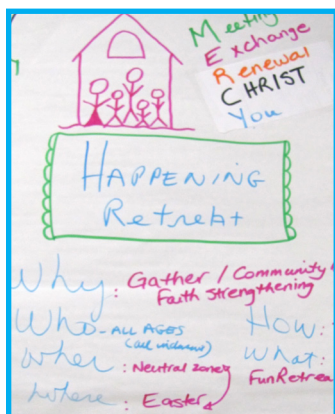 Meeting
Exchange
Renewal
CHRIST
You
HAPPENING
Retreat
Why: Gather / Community
Faith strengthening
Who - ALL AGES
How:
when: Neutral zone
What:
FunRetrea
where: Easter